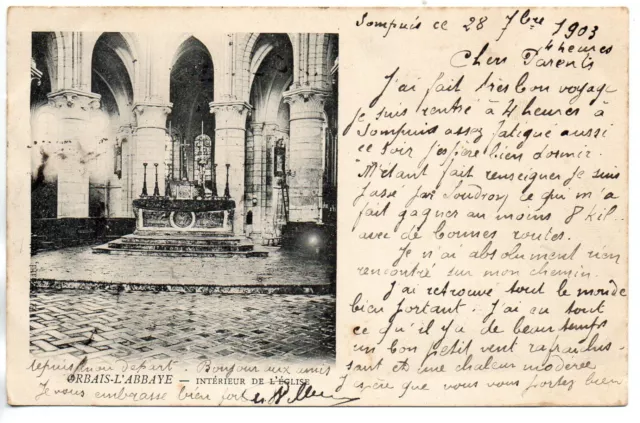 Sompuis ce 28 7bre 1903
4 heures
Chers Parents
J'ai fait très bon voyage
je suis rentré à 4 heures à
Sompuis assez fatigué aussi
ce soir j'espère bien dormir.
M'étant fait renseigner je suis
passé par Soudron, ce qui m'a
fait gagner au moins 8 kil
avec de bonnes routes.
Je n'ai absolument rien
rencontré sur mon chemin.
J'ai retrouvé tout le monde
bien portant. J'ai eu tout
ce qu'il y a de beau temps
un bon petit vent rafraichis-
sant et une chaleur modérée
j'espère que vous vous portez bien
depuis mon départ. Bonjour aux amis
ORBAIS-L'ABBAYE — INTÉRIEUR DE L'ÉGLISE
Je vous embrasse bien fort